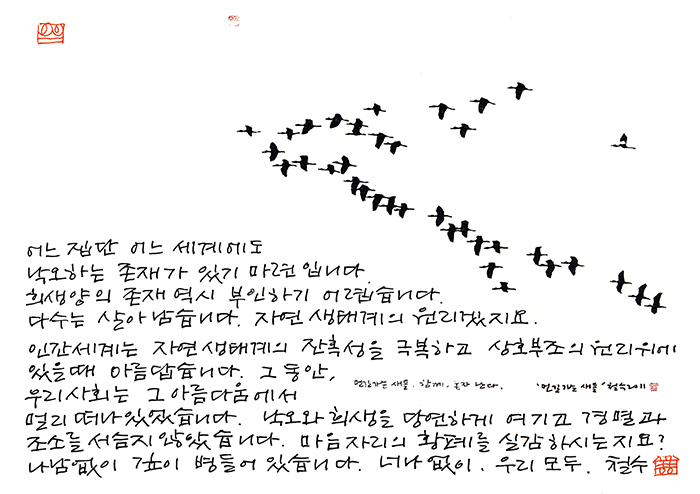 어느 집단 어느 세계에도
낙오하는 존재가 있기 마련입니다.
희생양의 존재 역시 부인하기 어렵습니다.
다수는 살아남습니다. 자연 생태계의 원리겠지요.
인간세계는 자연생태계의 잔혹성을 극복하고 상호부조의 원리위에
있을때 아름답습니다. 그 동안,
먼길가는 새들. 함께. 혼자 난다.
'먼길가는 새들' 철수2011
우리사회는 그 아름다움에서
멀리 떠나있었습니다. 낙오와 희생을 당연하게 여기고 경멸과
조소를 서슴지 않았습니다. 마음자리의 황폐를 실감하시는지요?
나남없이 깊이 병들어 있습니다. 너나없이. 우리 모두. 철수